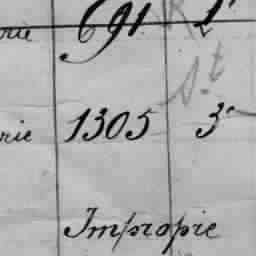 rie 691. 2'
s.t
rie 1305 3'
Impropie